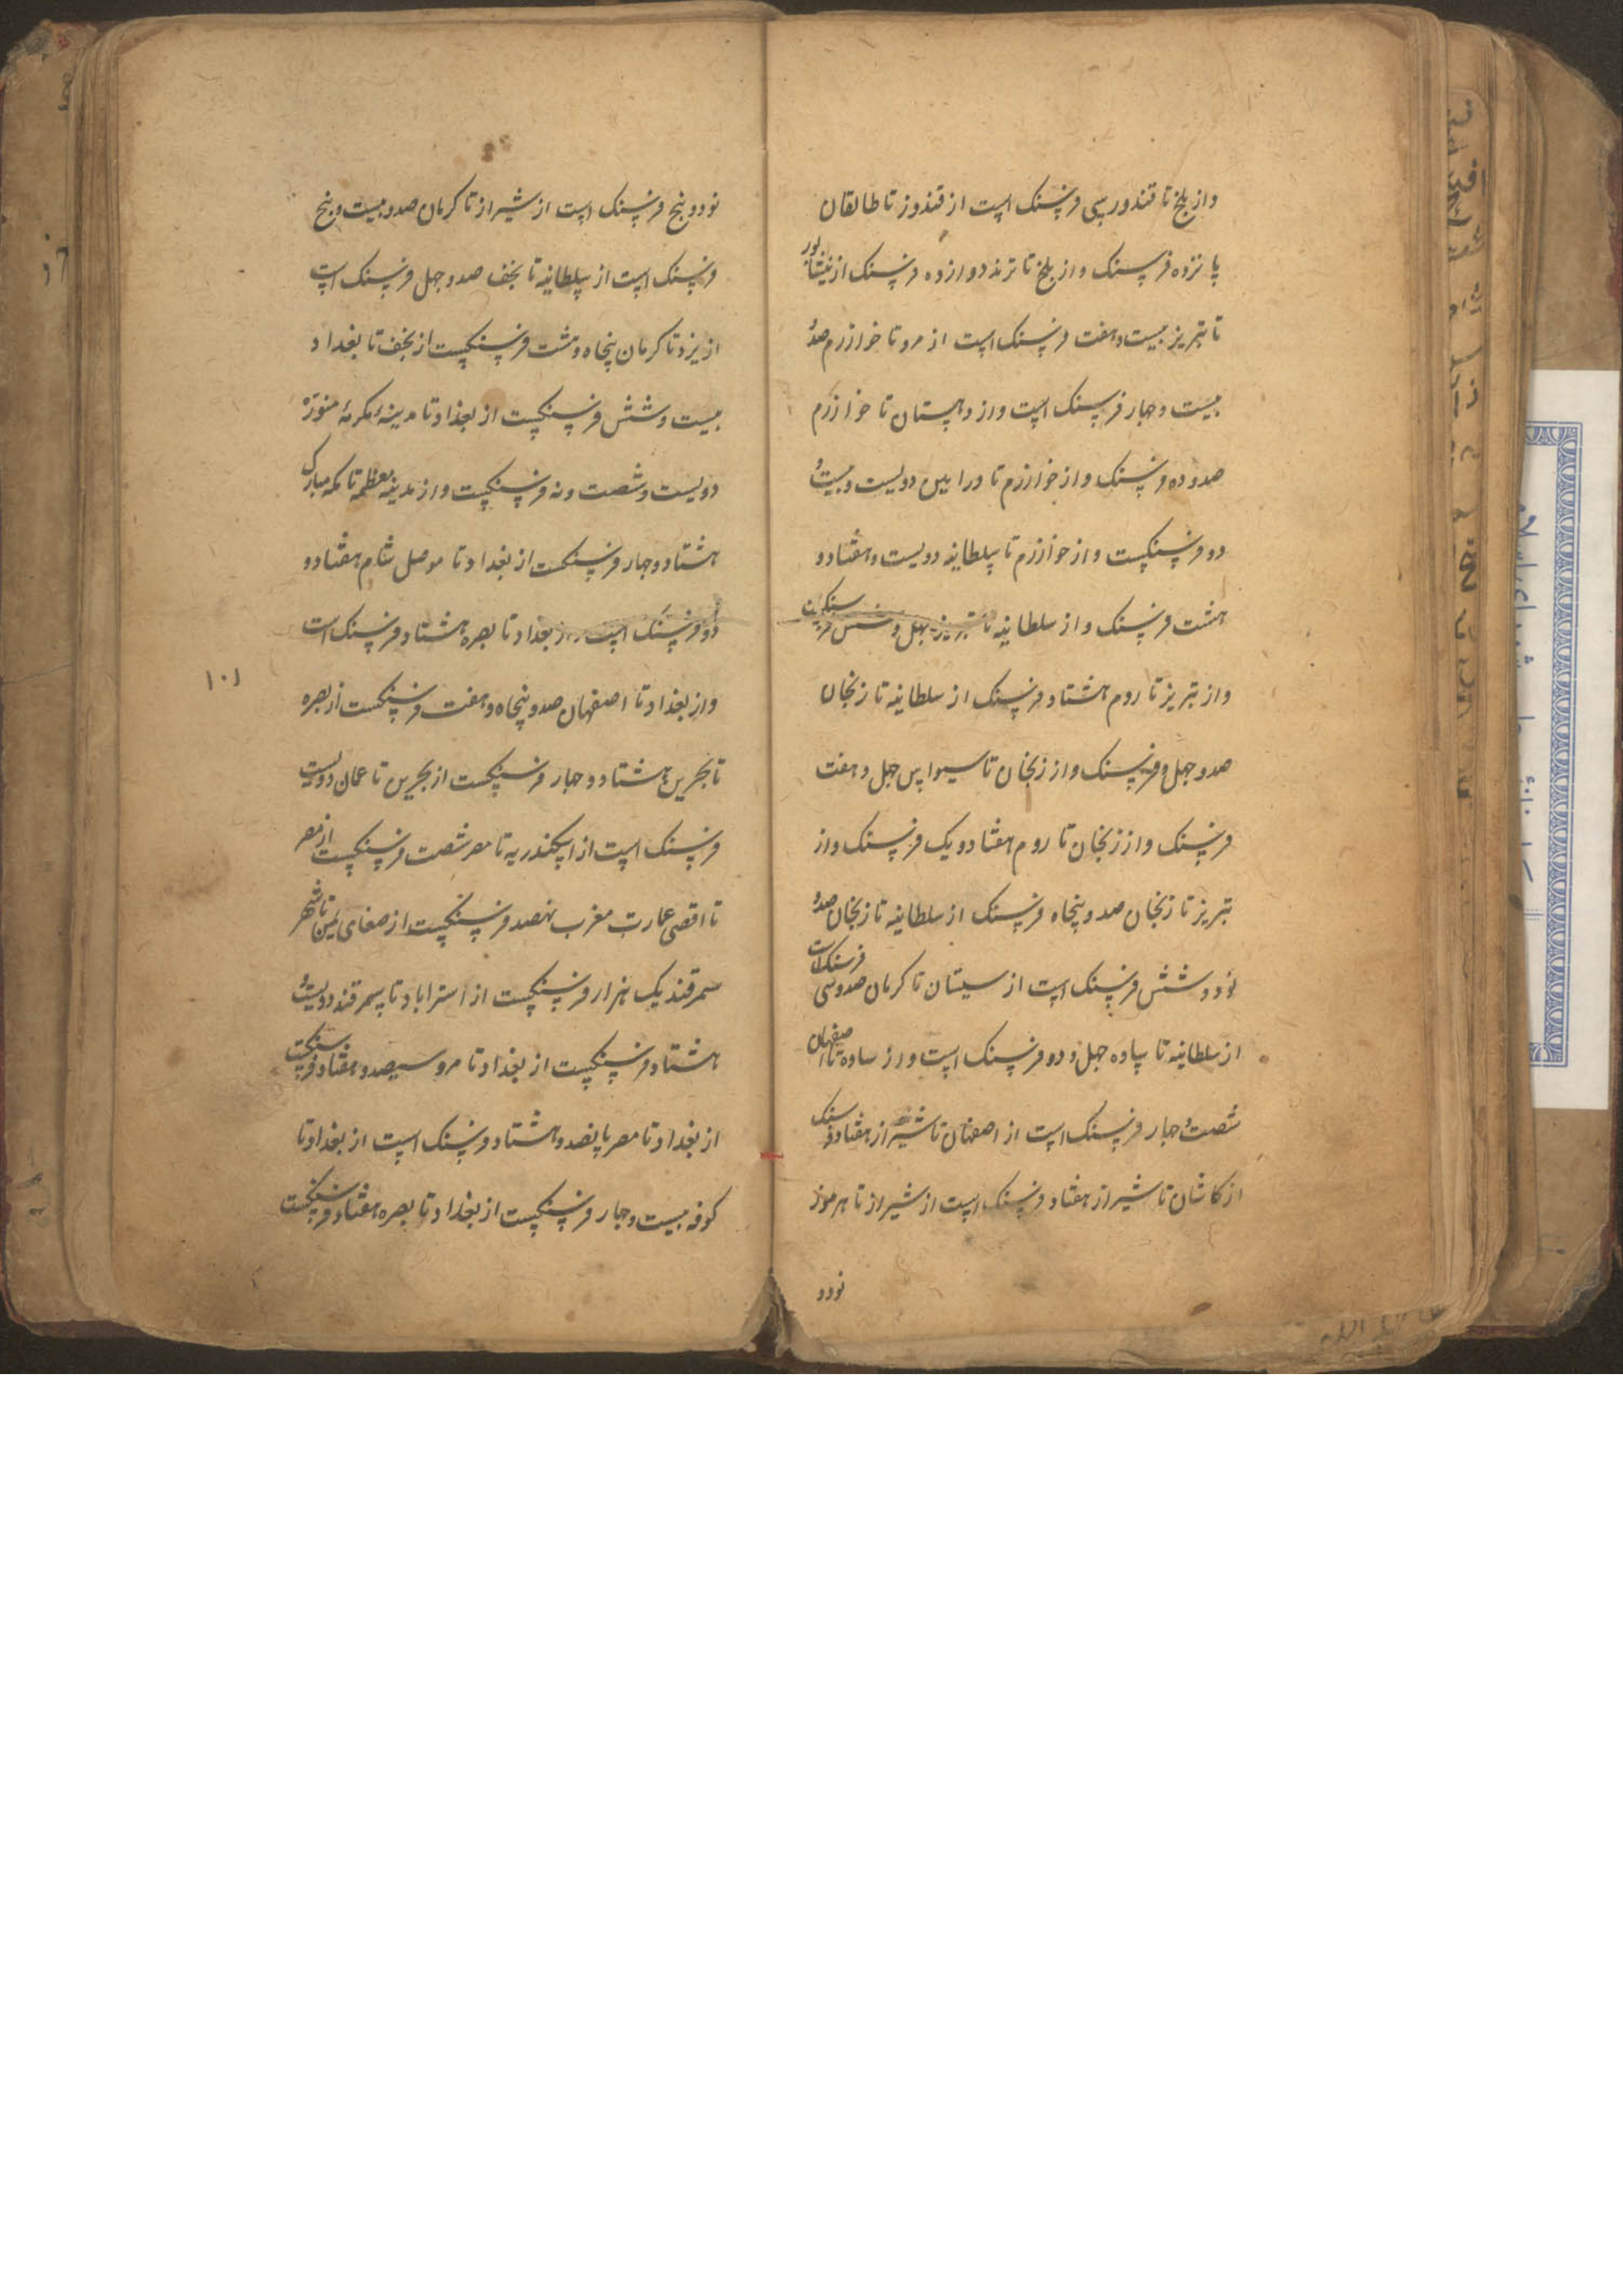 واز بلخ تا قندوز سی فرسنک است از قندوز تا طالقان
پانزده فرسنک واز بلخ تا ترمذ دوازده فرسنک از نیشابور
تا تبریز بیست وهفت فرسنک است از مرو تا خوارزم صدو
بیست وجهار فرسنک است واز دهستان تا خوارزم
صدوده فرسنک واز خوارزم تا دویست وبیست و
دو فرسنکست واز خوارزم تا سلطانیه دویست وهفتادو
هشت فرسنک واز سلطانیه تا تبریز جهل وشش فرسنکست
واز تبریز تا روم هشتاد فرسنک از سلطانیه تا زنجان
صدوجهل فرسنک واز زنجان تا سیواس جهل وهفت
فرسنک واز زنجان تا روم هفتادویک فرسنک واز
تبریز تا زنجان صدوپنجاه فرسنک از سلطانیه تا زنجان صدو
نودوشش فرسنک است از سیستان تا کرمان صدوسی فرسنک است
از سلطانیه تا ساوه جهل ودو فرسنک است واز ساوه تا اصفهان
شصت وجهار فرسنک است از اصفهان تا شیراز هفتاد فرسنک
از کاشان تا شیراز هفتاد فرسنک است از شیراز تا هرموز
نودو
نودوپنج فرسنک است از شیراز تا کرمان صدوبیست وپنج
فرسنک است از سلطانیه تا نجف صدوجهل فرسنک است
از یزد تا کرمان پنجاه وهشت فرسنکست از نجف تا بغداد
بیست وشش فرسنکست از بغداد تا مدینهٔ مکرمهٔ منوره
دویست وشصت ونه فرسنکست واز مدینه معظمه تا مکه مبارک
هشتادوجهار فرسنکست از بغداد تا موصل شام هفتادو
دو فرسنک است از بغداد تا بصره هشتاد فرسنک است
واز بغداد تا اصفهان صدوپنجاه وهفت فرسنکست از بصره
تا بحرین هشتادوجهار فرسنکست از بحرین تا عمان دویست
فرسنک است از اسکندریه تا مصر شصت فرسنکست از مصر
تا اقصی عمارت مغرب نهصد فرسنکست از صنعای یمن تا شهر
سمرقند یک هزار فرسنکست از استراباد تا سمرقند دویست و
هشتاد فرسنکست از بغداد تا مرو سیصدوهفتاد فرسنکست
از بغداد تا مصر پانصدوهشتاد فرسنک است از بغداد تا
کوفه بیست وجهار فرسنکست از بغداد تا بصره هفتاد فرسنکست
۱۰۱